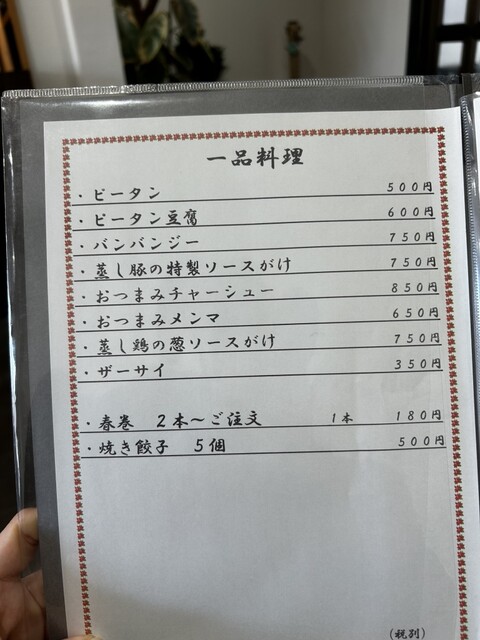 一品料理
・ピータン 500円
・ピータン豆腐 600円
・バンバンジー 750円
・蒸し豚の特製ソースがけ 750円
・おつまみチャーシュー 850円
・おつまみメンマ 650円
・蒸し鶏の葱ソースがけ 750円
・ザーサイ 350円
・春巻 2本〜ご注文 1本 180円
・焼き餃子 5個 500円
(税別)